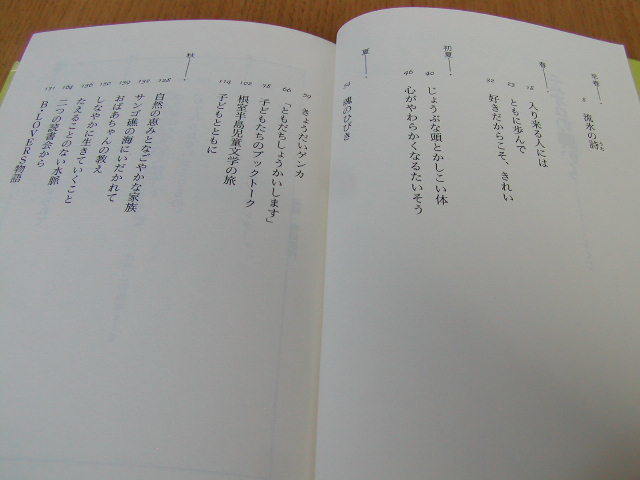 早春――
8 流氷の詩
春――
18 入り来る人には
23 ともに歩んで
32 好きだからこそ、きれい
初夏――
40 じょうぶな頭とかしこい体
46 心がやわらかくなるたいそう
夏――
52 魂のひびき
59 きょうだいゲンカ
66 「ともだちしょうかいします」
78 子どもたちのブックトーク
102 根室半島児童文学の旅
114 子どもとともに
秋――
128 自然の恵みとなごやかな家族
132 サンゴ礁の海にいだかれて
139 おばあちゃんの教え
150 しなやかに生きていくこと
156 たえることのない水脈
164 二つの読書会から
171 B・LOVERS物語